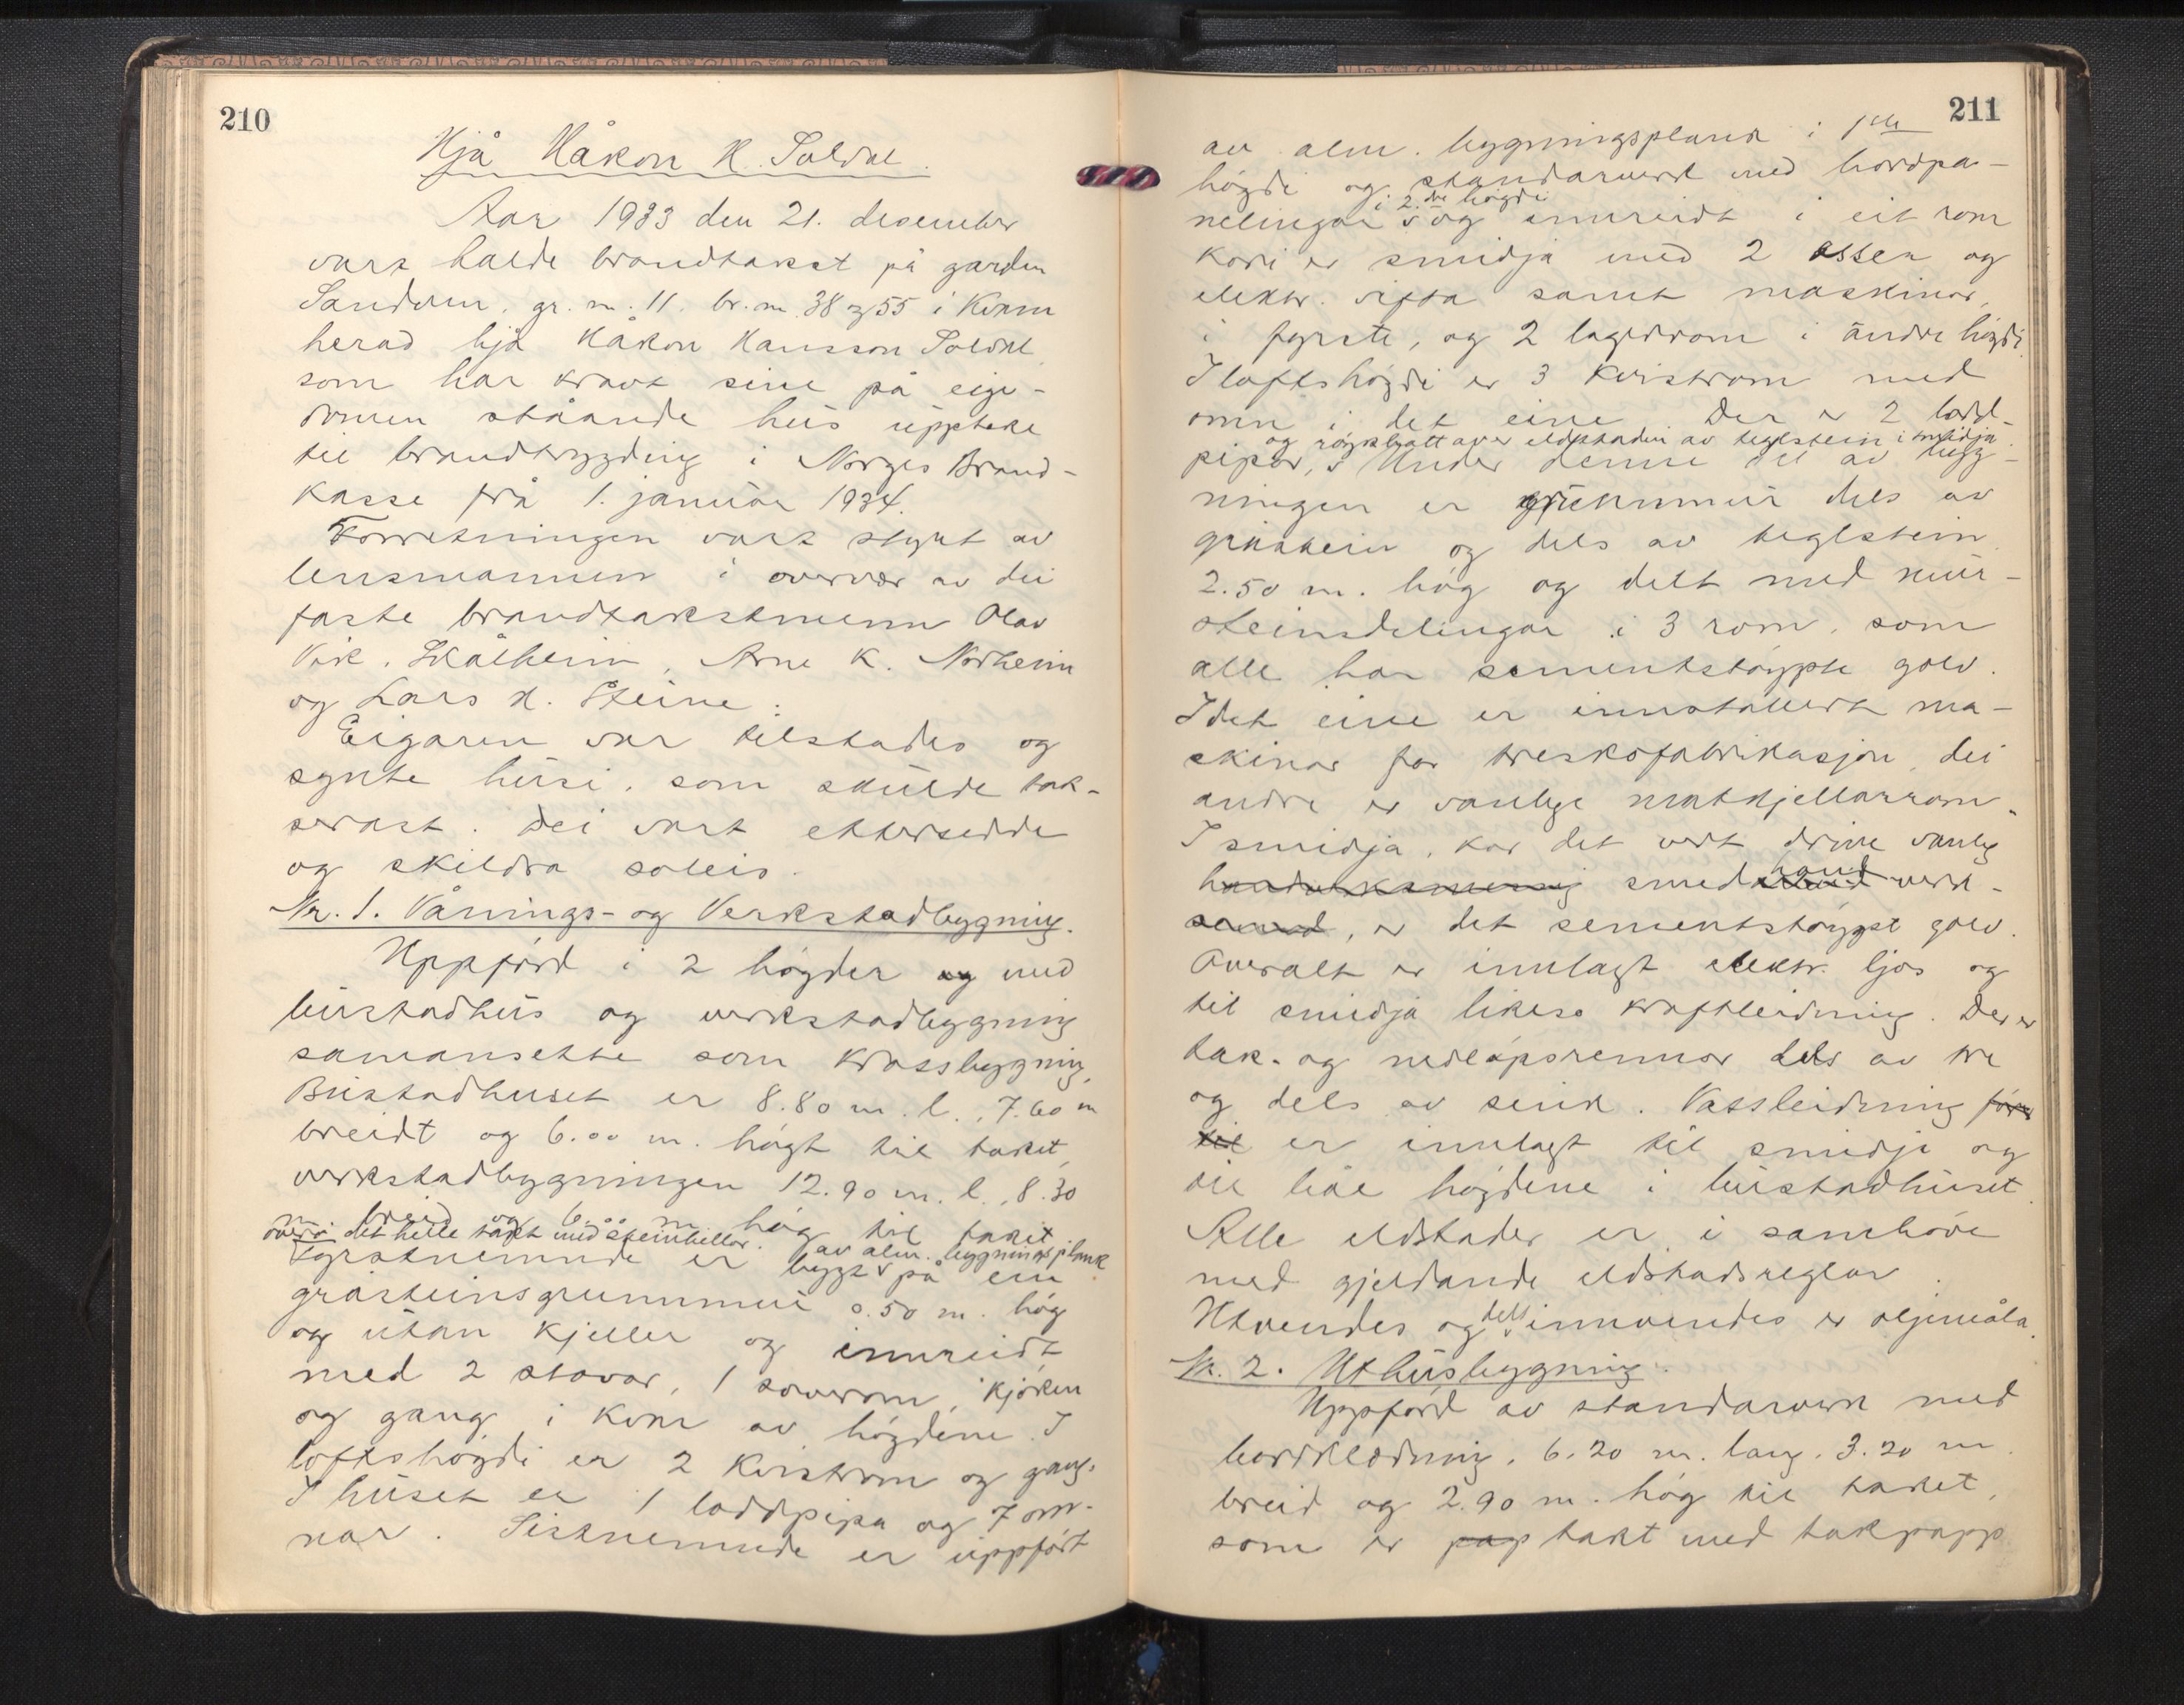 210
Hjå Håkon H. Soldal.
Aar 1933 den 21. desember
vart halde brandtakst på garden
Sandven, gr. nr. 11. br. nr. 38 og 55 i Kvam
herad hjå Håkon Hansson Soldal
som har kravt sine på eige-
domen ståande hus uppteke
til brandtrygding i Norges Brand-
kasse frå 1. januar 1934.
Forretningen vart styrt av
lensmannen i overvær av dei
faste brandtakstmenn Olav
Vik, Skålheim, Arne K. Norheim
og Lars N. Steine.
Eigaren var tilstades og
synte husi, som skulde tak-
serast. Dei vart ettersedde
og skildra soleis.
Nr. 1. Vånings- og Verkstadbygning.
Uppförd i 2 högder og med
bustadhus og verkstadbygning
samansette som krossbygning.
Bustadhuset er 8.80 m. l., 7.60 m
breidt og 6.00 m. högt til taket,
verkstadbygningen 12.90 m. l., 8.30
m breid og 6.00 m hög til taket
det helle takt med steinhellor.
Fyrstnemnde er bygt av alm. bygningsplank på ein
gråsteinsgrunnmur 0.50 m. hög
og utan kjeller og innreidt
med 2 stovor, 1 soverom, kjöken
og gang i kvar av högdene. I
loftshögdi er 2 kvistrom og gang.
I huset er 1 loddpipa og 7 om-
nar. Sistnemnde er uppfört
211
av alm. bygningsplank i 1ste
högdi og standarverk med bordpa-
nelingar i 2. dre högdi og innreidt i eit rom
kori er smidja med 2 essor og
elektr. vifta samt maskinor,
i fyrste, og 2 lagerrom i andre högdi.
I loftshögdi er 3 kvistrom med
omn i det eine. Der er 2 lodd-
pipor, og röykhatt over eldstadin av teglstein i smidja. Under denne del av bygg-
ningen er grunnmur dels av
gråstein og dels av teglstein
2.50 m. hög og delt med mur-
steinsdelingar i 3 rom, som
alle har sementstöypte golv.
I det eine er innstallert ma-
skinor for treskofabrikasjon, dei
andre er vanlege matkjellarrom.
I smidja, kor det vert drive vanleg
smedhandverk-
, er det sementstöypt golv.
Overalt er innlagt elektr. ljos og
til smidja likeso kraftleidning. Der er
tak- og nedlöpsrennor dels av tre
og dels av sink. Vassleidning förer
til er innlagt til smidje og
til båe högdene i bustadhuset.
Alle eldstader er i samhöve
med gjeldande eldstadsreglar.
Utvendes og dels innvendes er oljemåla.
Nr. 2. Uthusbygning.
Uppförd av standarverk med
bordklædning, 6.20 m. lang, 3.20 m.
breid og 2.90 m. hög til taket,
som er pap takt med takpapp